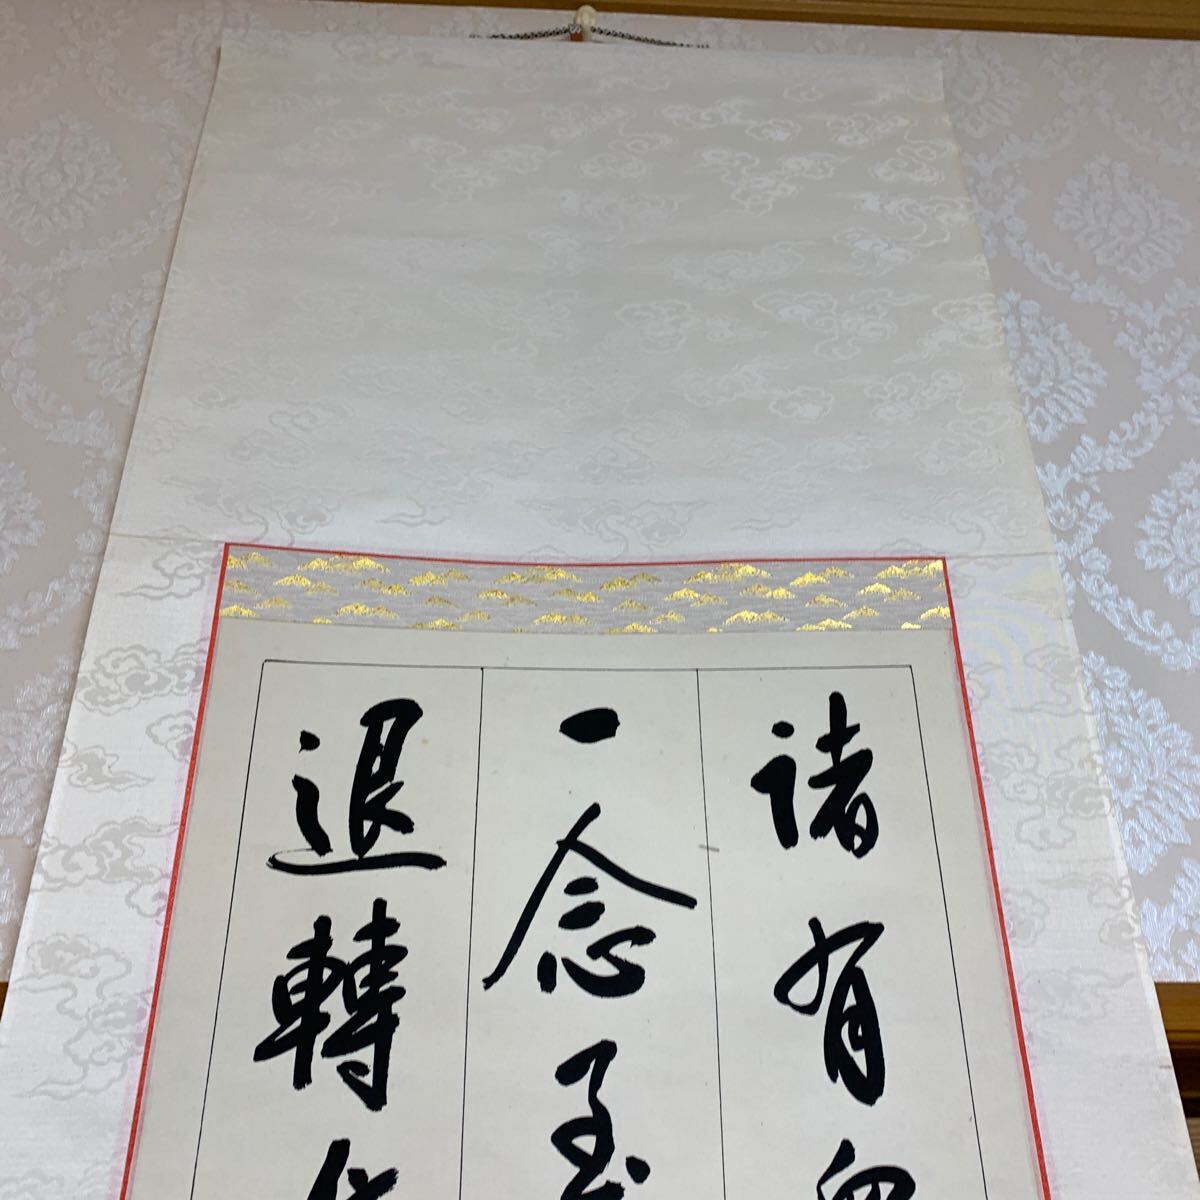 諸有衆
一念至
退轉